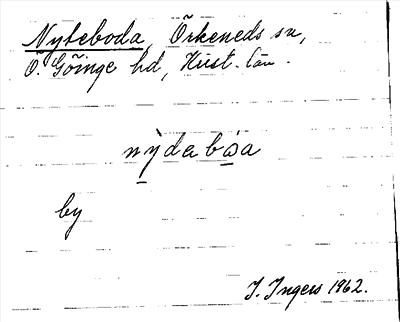 Nyteboda, Örkeneds sn,
Ö. Göinge hd, Krist. län.
nỳdabóa
by
I. Ingers 1962.